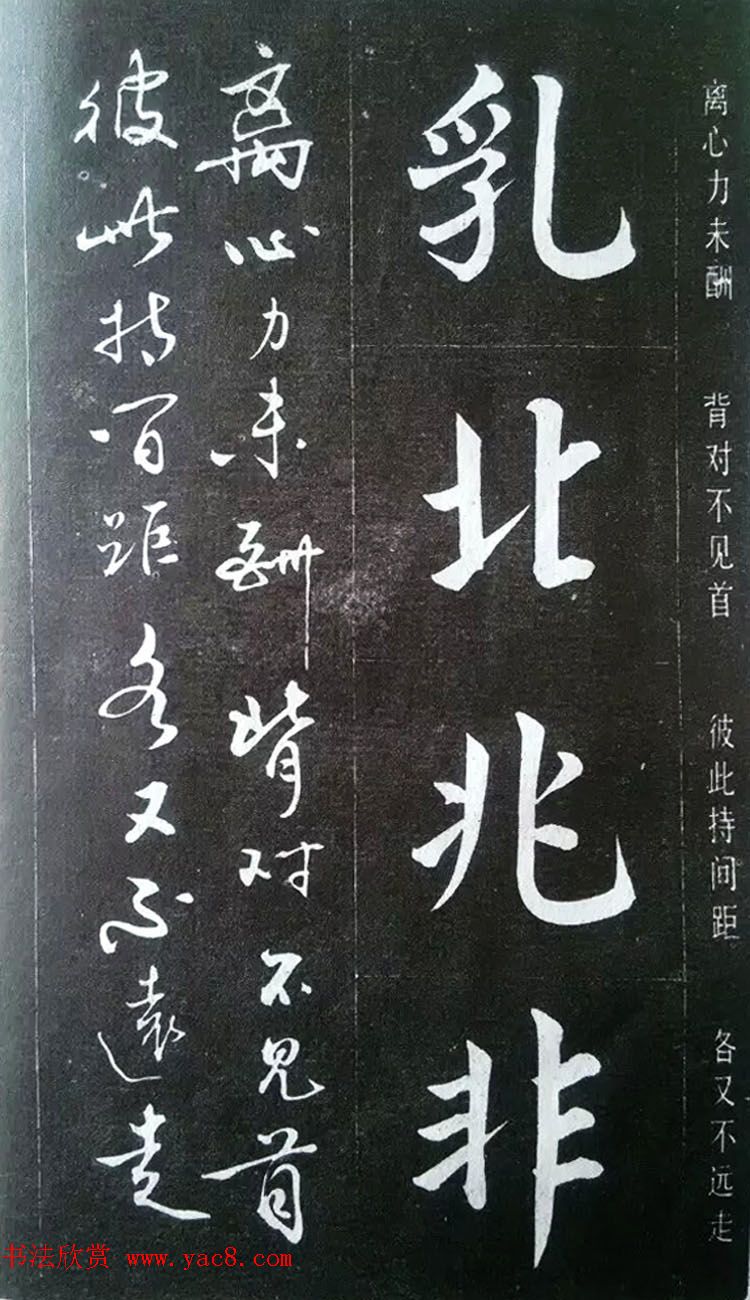 离心力未酬 背对不见首 彼此持间距 各又不远走
乳北兆非
离心力未酬背对不见首
彼此持间距各又不遠走
书法欣赏 www.yac8.com